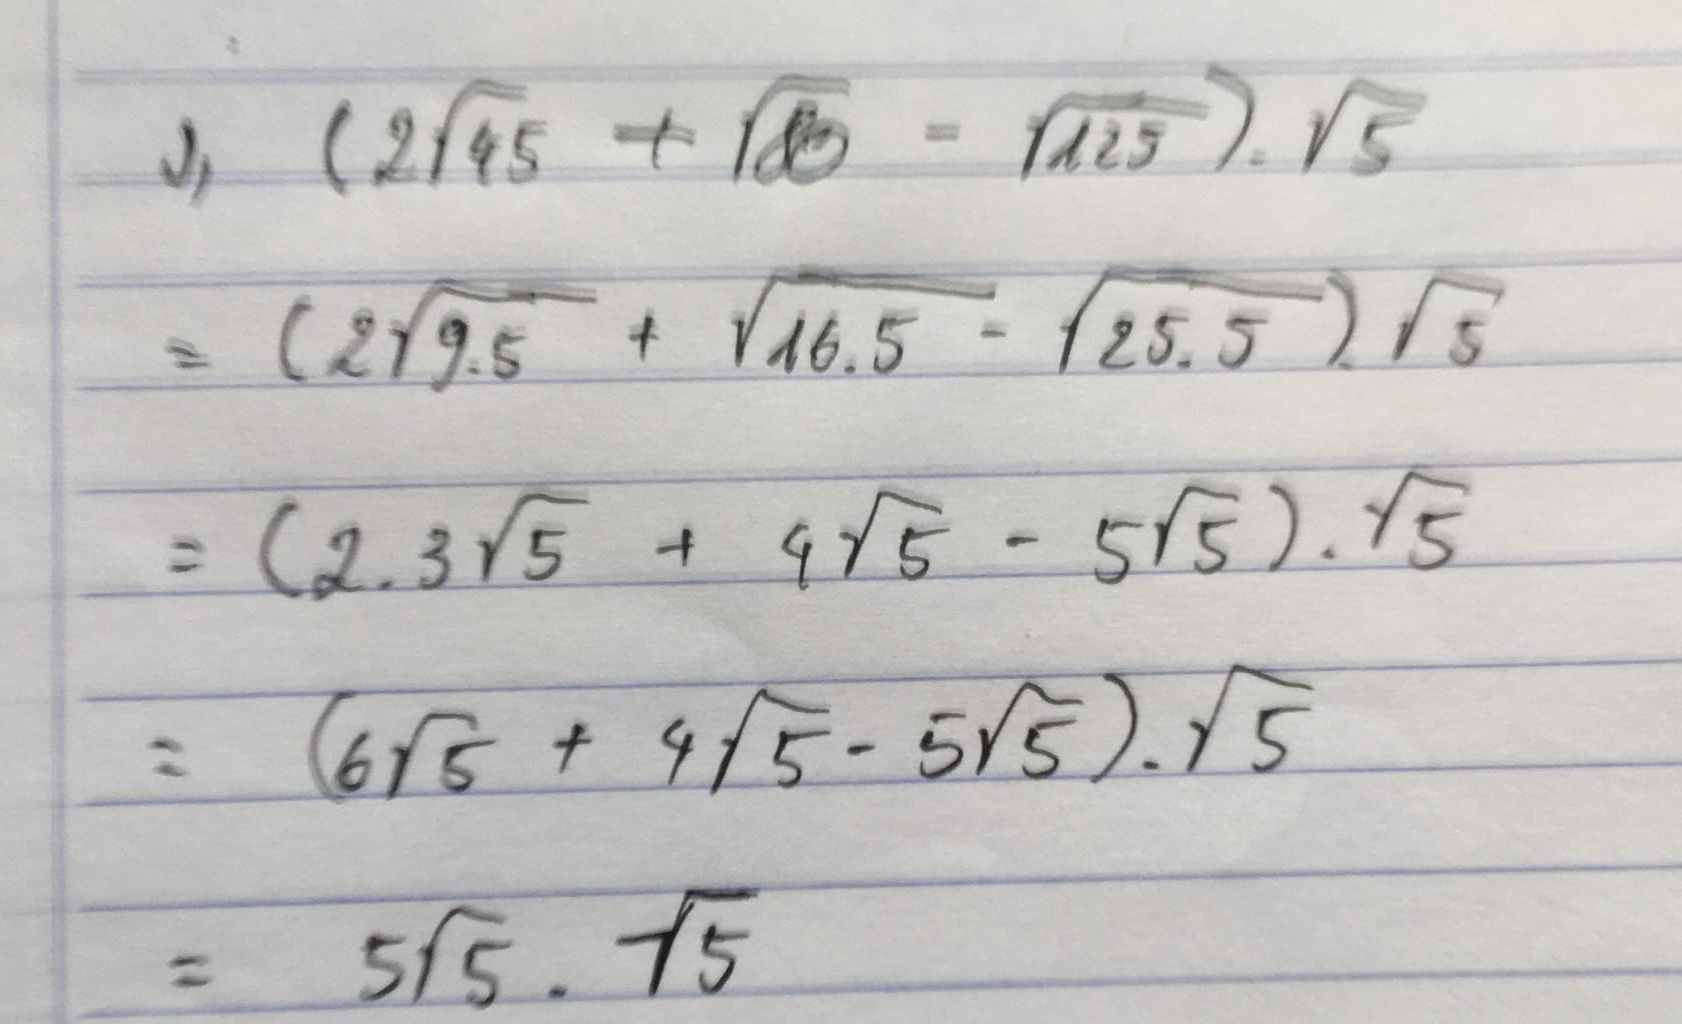 (2√45 + √80 - √125).√5
= (2√9.5 + √16.5 - √25.5).√5
= (2.3√5 + 4√5 - 5√5).√5
= (6√5 + 4√5 - 5√5).√5
= 5√5.√5